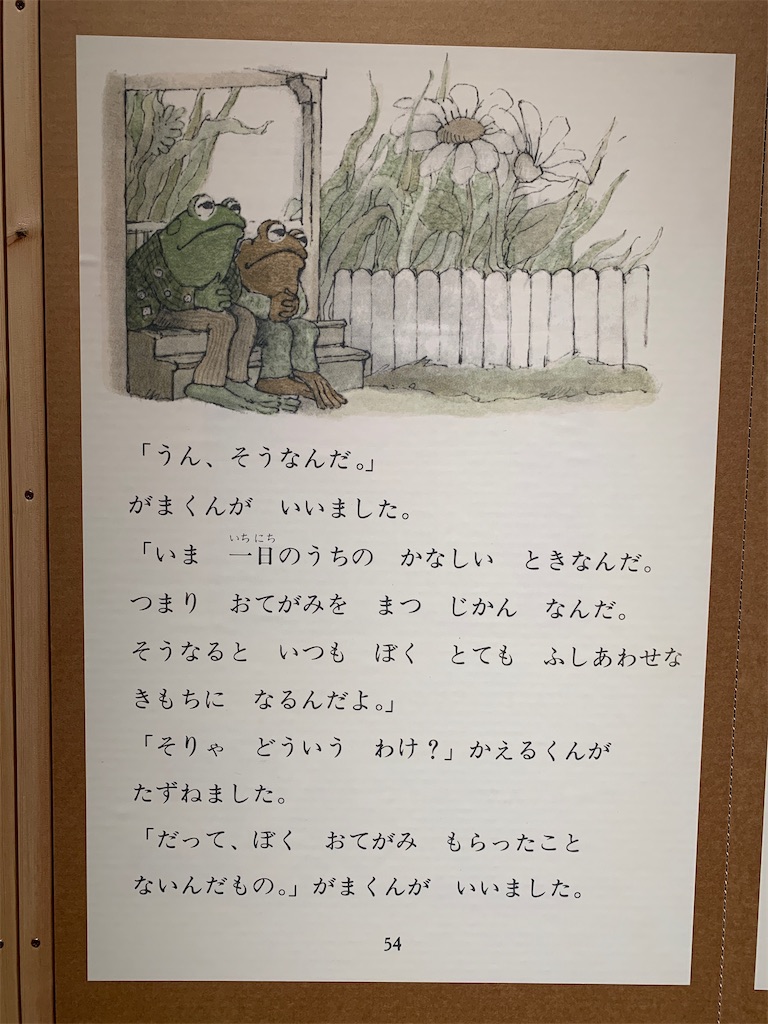 「うん、そうなんだ。」
がまくんが　いいました。
「いま　一日のうちの　かなしい　ときなんだ。
いちにち
つまり　おてがみを　まつ　じかん　なんだ。
そうなると　いつも　ぼく　とても　ふしあわせな
きもちに　なるんだよ。」
「そりゃ　どういう　わけ？」かえるくんが
たずねました。
「だって、ぼく　おてがみ　もらったこと
ないんだもの。」がまくんが　いいました。
54